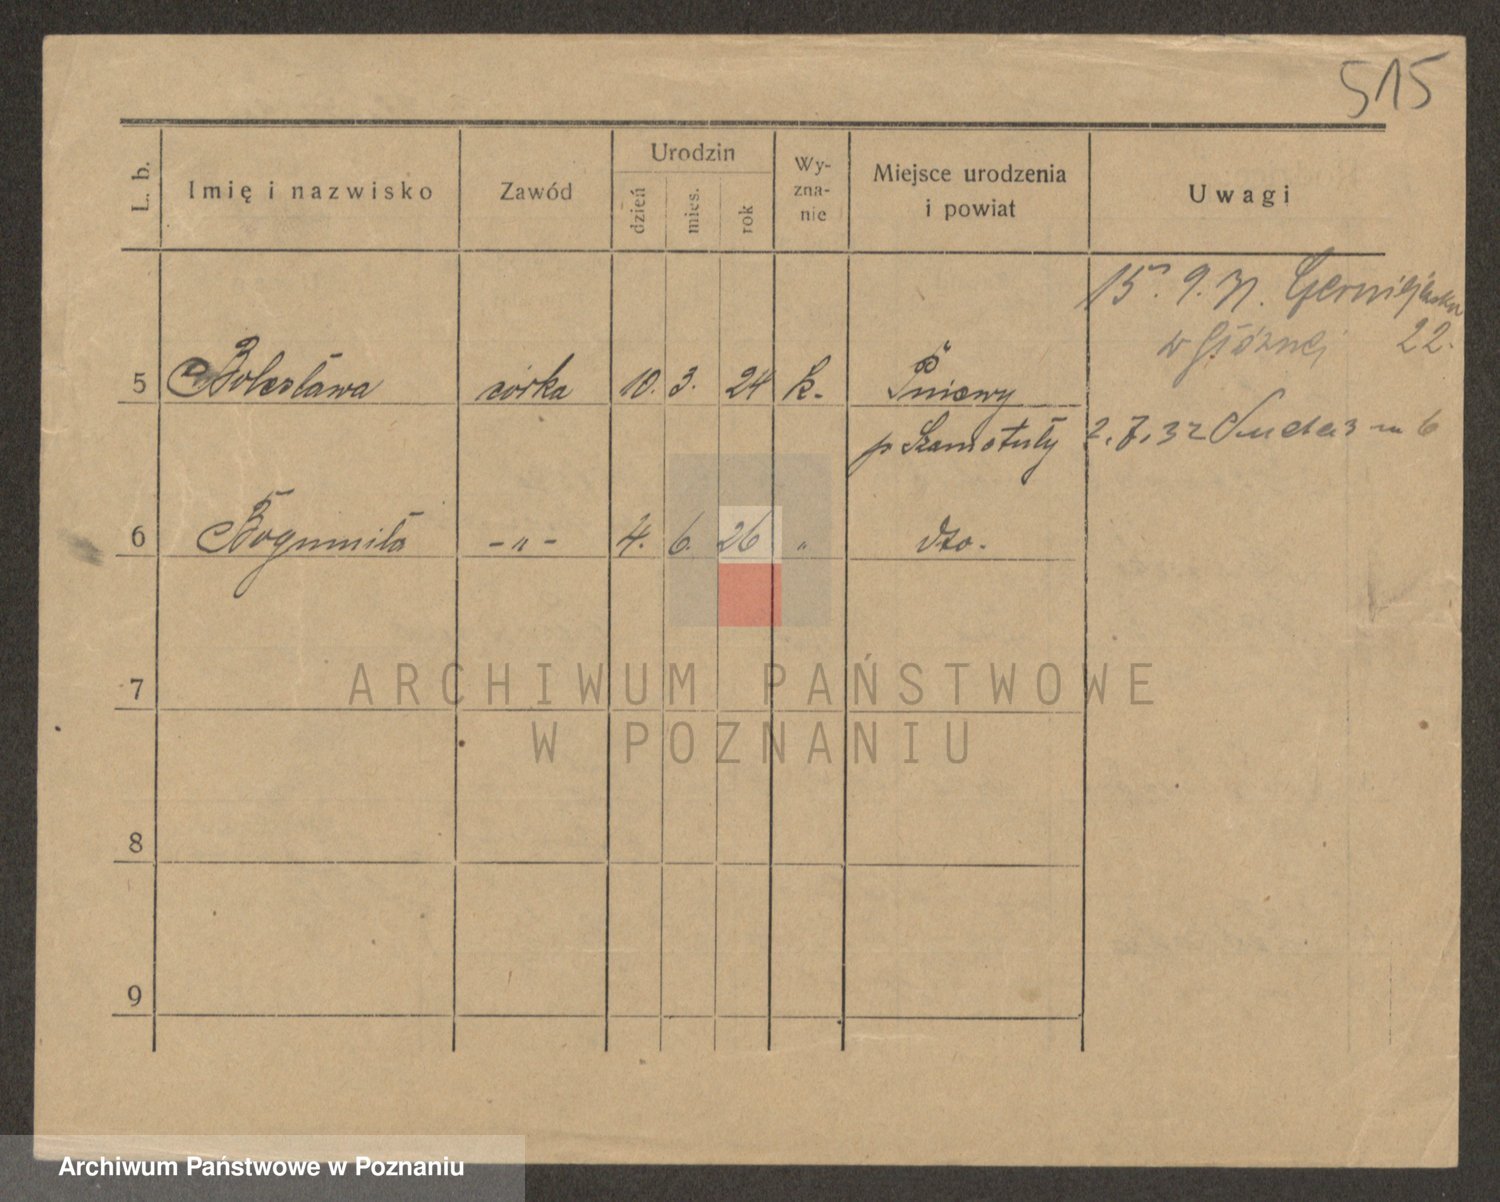 515
L. b. Imię i nazwisko Zawód Urodzin dzień mies. rok Wy-zna-nie Miejsce urodzenia i powiat Uwagi
15. 9. 31.
w Głównej 22.
5 Bolesława córka 10. 3. 24 k. Pniewy
p Szamotuły 2. 7. 32 6
6 Bogumiła -"- 4. 6. 26 " dto.
7
ARCHIWUM PAŃSTWOWE
W POZNANIU
8
9
Archiwum Państwowe w Poznaniu